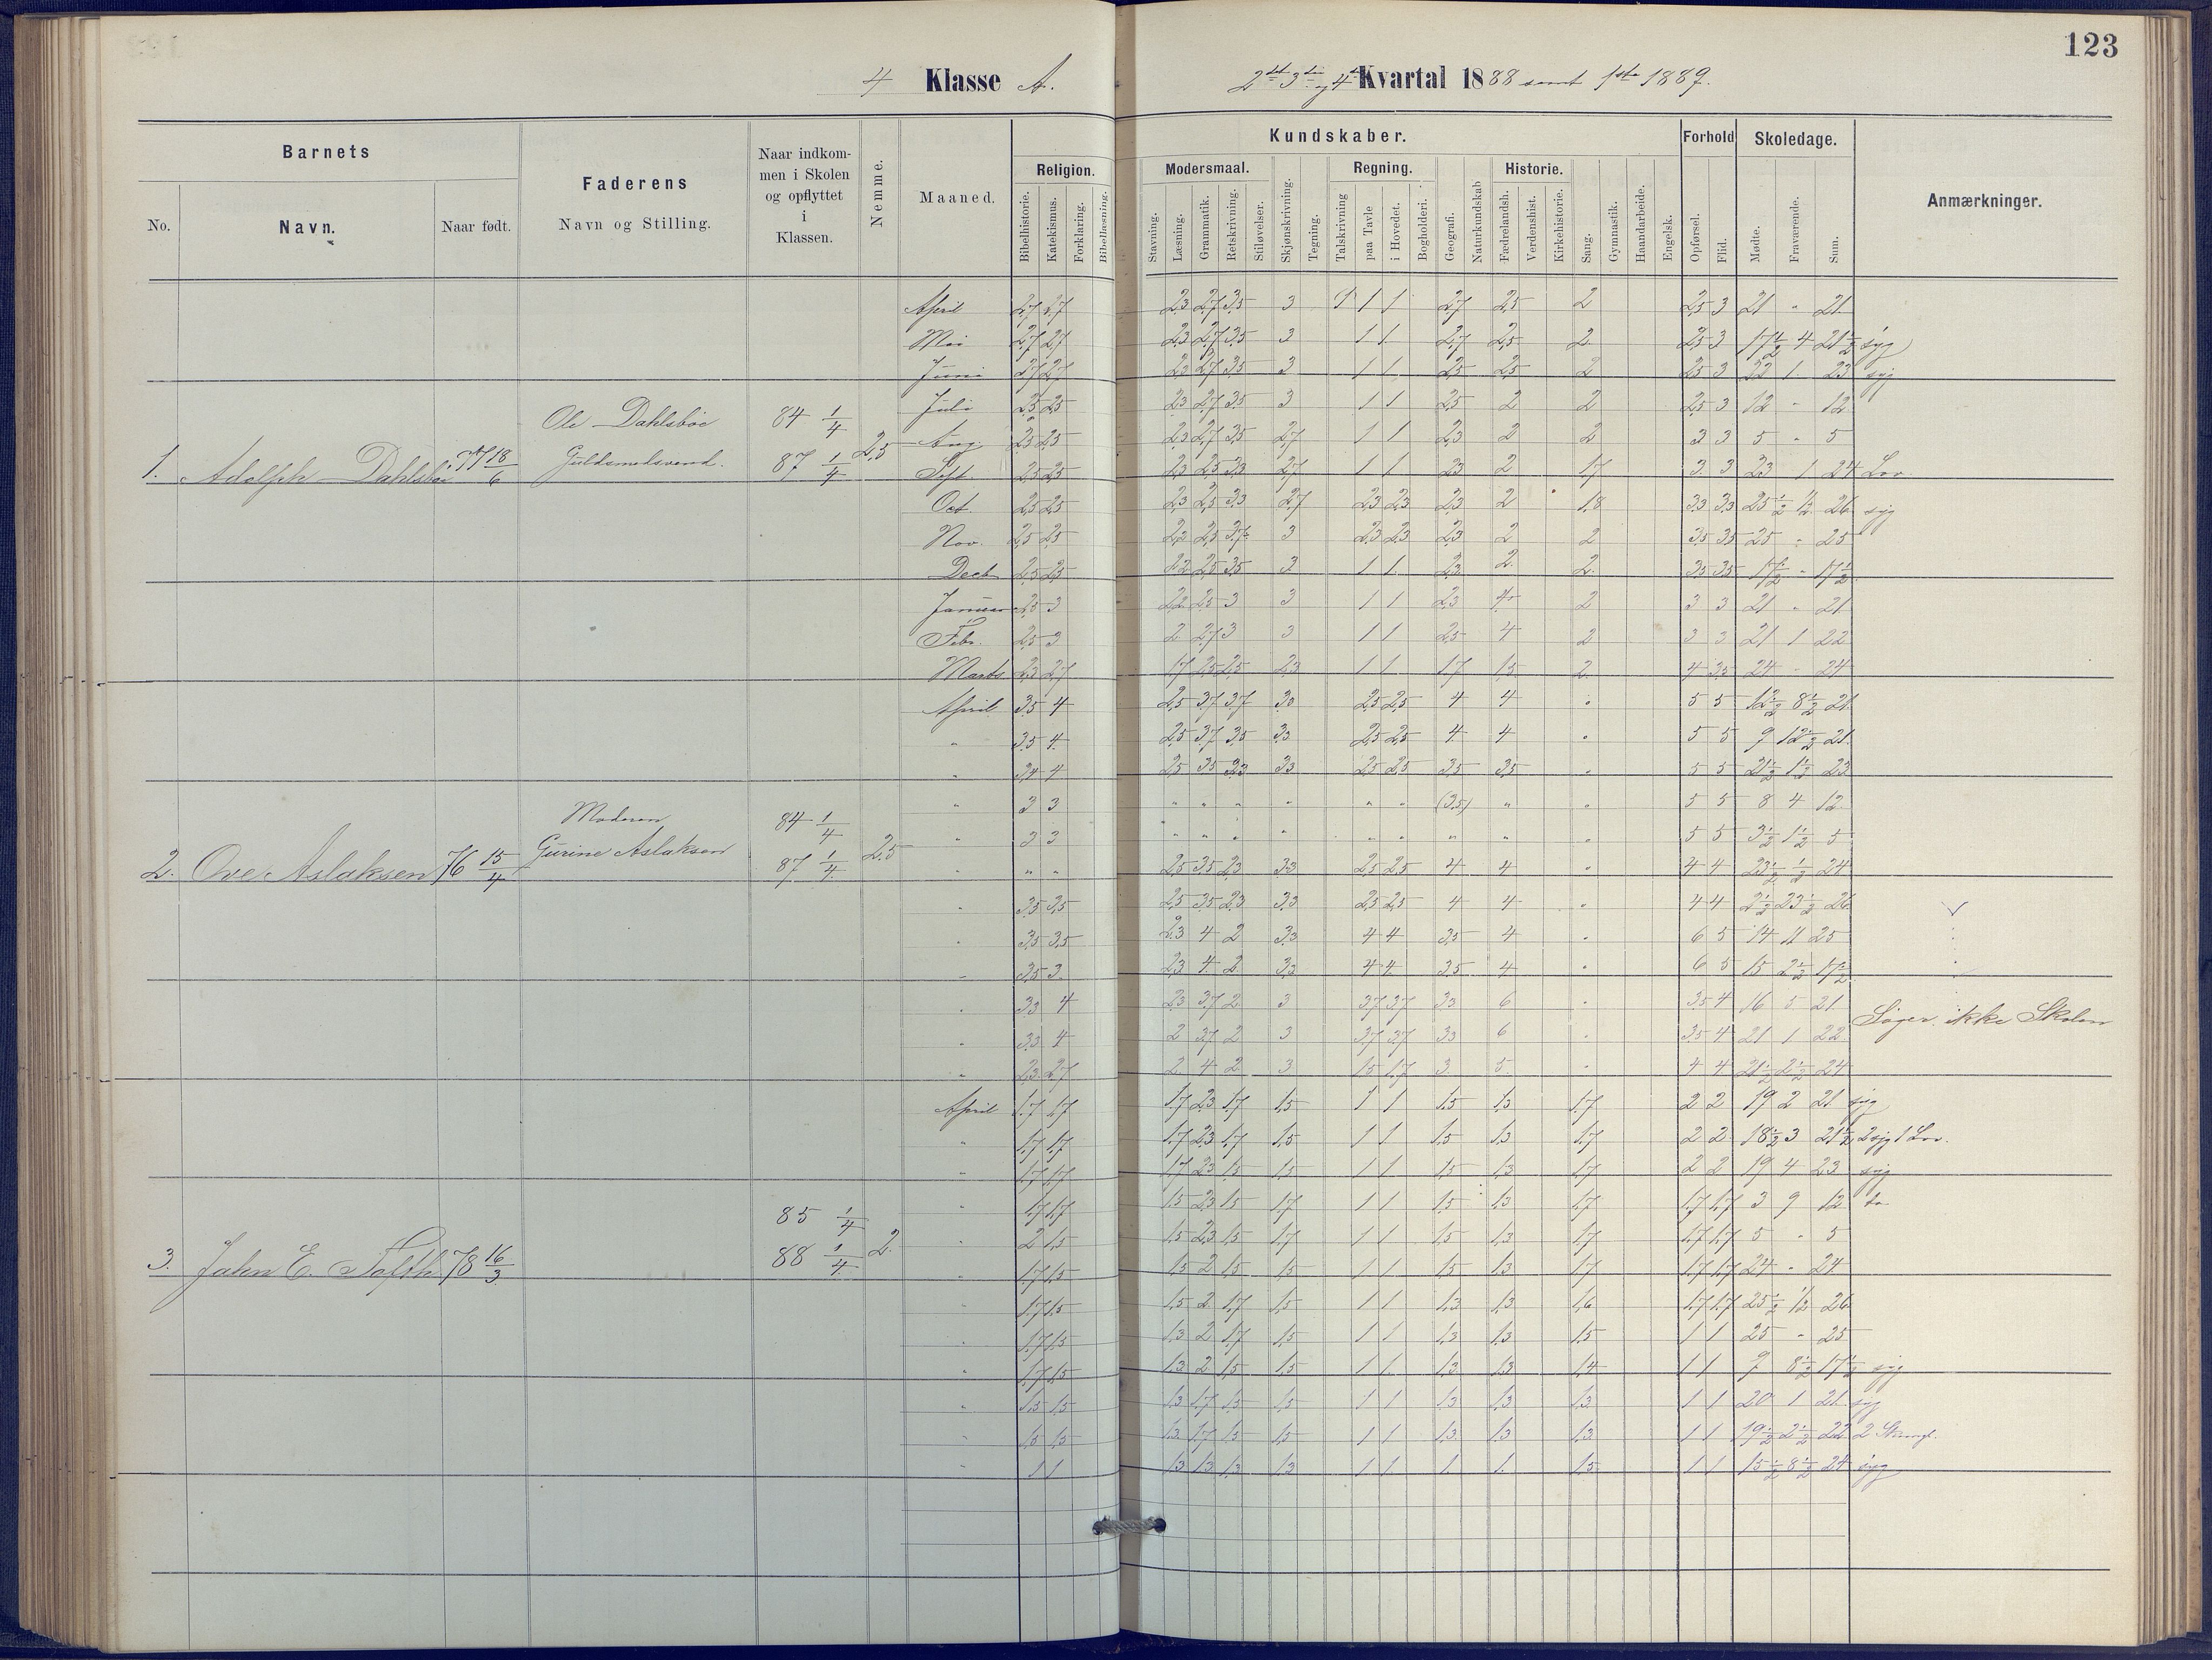 123
4 Klasse A.
2det 3die og 4de Kvartal 1888 samt 1ste 1889.
Barnets
Faderens
Naar indkommen i Skolen og opflyttet i Klassen.
Nemme.
Maaned.
Kundskaber.
Forhold
Skoledage.
Anmærkninger.
No.
Navn.
Naar født.
Navn og Stilling.
Religion.
Modersmaal.
Regning.
Historie.
Bibelhistorie.
Katekismus.
Forklaring.
Bibellæsning.
Stavning.
Læsning.
Grammatik.
Retskrivning.
Stiløvelser.
Skjønskrivning.
Tegning.
Talskrivning
paa Tavle
i Hovedet.
Bogholderi.
Geografi.
Naturkundskab
Fædrelandsh.
Verdenshist.
Kirkehistorie.
Sang.
Gymnastik.
Haandarbeide.
Engelsk.
Opførsel.
Flid.
Mødte.
Fraværende.
Sum.
1. Adolph Dahlsböe 77 18/6
Ole Dahlsböe
Guldsmedsvend.
84 1/4
87 1/4
2,5
April 2,7 2,7 2,3 2,7 3,5 3 1 1 1 2,7 2,5 2 2,5 3 21 - 21
Mai 2,7 2,7 2,3 2,7 3,5 3 1 1 2,7 2,5 2 2,5 3 17 1/2 4 21 1/2 syg
Juni 2,7 2,7 2,3 2,7 3,5 3 1 1 2,5 2,5 2 2,5 3 22 1 23 syg
Juli 2,5 2,5 2,3 2,7 3,5 3 1 1 2,5 2 2 2,5 3 12 - 12
Aug. 2,5 2,5 2,3 2,7 3,5 2,7 1 1 2,3 2 2 3 3 5 - 5
Sept. 2,5 2,5 2,3 2,5 3,3 2,7 1 1 2,3 2 1,7 3 3 23 1 24 Lov
Oct. 2,5 2,5 2,3 2,5 3,3 2,7 2,3 2,3 2,3 2 1,8 3,3 3,3 25 1/2 1/2 26 syg
Nov. 2,5 2,5 2,2 2,5 3,7 3 2,3 2,3 2,3 2 2 3,5 3,5 25 - 25
Decb 2,5 2,5 2,2 2,5 3,5 3 1 1 2,3 2 2 3,5 3,5 17 1/2 - 17 1/2
Januar 2,5 3 2,2 2,5 3 3 1 1 2,3 4 2 3 3 21 - 21
Febr. 2,5 3 2 2,7 3 3 1 1 2,5 4 2 3 3 21 1 22
Marts 2,3 2,7 1,7 2,5 2,5 2,3 1 1 1,7 1,5 2 4 3,5 24 - 24
2. Ove Aslaksen 76 15/4
Moderen
Gurine Aslaksen
84 1/4
87 1/4
2,5
April 3,5 4 2,5 3,7 3,7 3,0 2,5 2,5 4 4 5 5 12 1/2 8 1/2 21
" 3,5 4 2,5 3,7 3,5 3,3 2,5 2,5 4 4 5 5 9 12 1/2 21
" 3,4 4 2,5 3,5 3,3 3,3 2,5 2,5 3,5 3,5 5 5 21 1/2 1 1/2 23
" 3 3 " " " " " " (3,5) " 5 5 8 4 12
" 3 3 " " " " " " " " 5 5 3 1/2 1 1/2 5
" " " 2,5 3,5 2,3 3,3 2,5 2,5 4 4 4 4 23 1/2 1/2 24
" 3,5 3,5 2,5 3,5 2,3 3,3 2,5 2,5 4 4 4 4 2 1/2 23 1/2 26
" 3,5 3,5 2,3 4 2 3,3 4 4 3,5 4 6 5 14 11 25
" 3,5 3 2,3 4 2 3,3 4 4 3,5 4 6 5 15 2 1/2 17 1/2
" 3,3 4 2,3 3,7 2 3 3,7 3,7 3,3 6 3,5 4 16 5 21
Søger ikke Skolen
" 3,3 4 2 3,7 2 3 3,7 3,7 3,3 6 3,5 4 21 1 22
" 2,3 2,7 2 4 2 3 1,5 1,7 3 5 4 4 21 1/2 2 1/2 24
3. Jahn E. Tofth 78 16/3
85 1/4
88 1/4
2.
April 1,7 1,7 1,7 2,3 1,7 1,5 1 1 1,5 1,3 1,7 2 2 19 2 21 syg
" 1,7 1,7 1,7 2,3 1,7 1,5 1 1 1,5 1,3 1,7 2 2 18 1/2 3 21 1/2 2 syg 1 Lov.
" 1,7 1,7 1,7 2,3 1,5 1,5 1 1 1,5 1,3 1,7 2 2 19 4 23 syg
" 1,7 1,7 1,5 2,3 1,5 1,7 1 1 1,5 1,3 1,7 1,7 1,7 3 9 12 do
" 2 1,5 1,5 2,3 1,5 1,7 1 1 1,5 1,3 1,7 1,7 1,7 5 - 5
" 1,7 1,5 1,5 2 1,5 1,5 1 1 1,5 1,3 1,7 1,7 1,7 24 - 24
" 1,7 1,5 1,5 2 1,7 1,5 1 1 1,3 1,3 1,6 1,7 1,7 25 1/2 1/2 26
" 1,7 1,5 1,3 2 1,7 1,5 1 1 1,3 1,3 1,5 1 1 25 - 25
" 1,7 1,5 1,3 2 1,5 1,5 1 1 1,3 1,3 1,4 1 1 9 8 1/2 17 1/2 syg
" 1,5 1,5 1,3 1,7 1,5 1,5 1 1 1,3 1,3 1,3 1 1 20 1 21 syg
" 1,5 1,5 1,3 1,7 1,5 1,5 1 1 1,3 1,3 1,3 1 1 19 1/2 2 1/2 22
" 1 1 1,3 1,3 1,3 1,3 1 1 1 1 1,5 1 1 15 1/2 8 1/2 24 syg